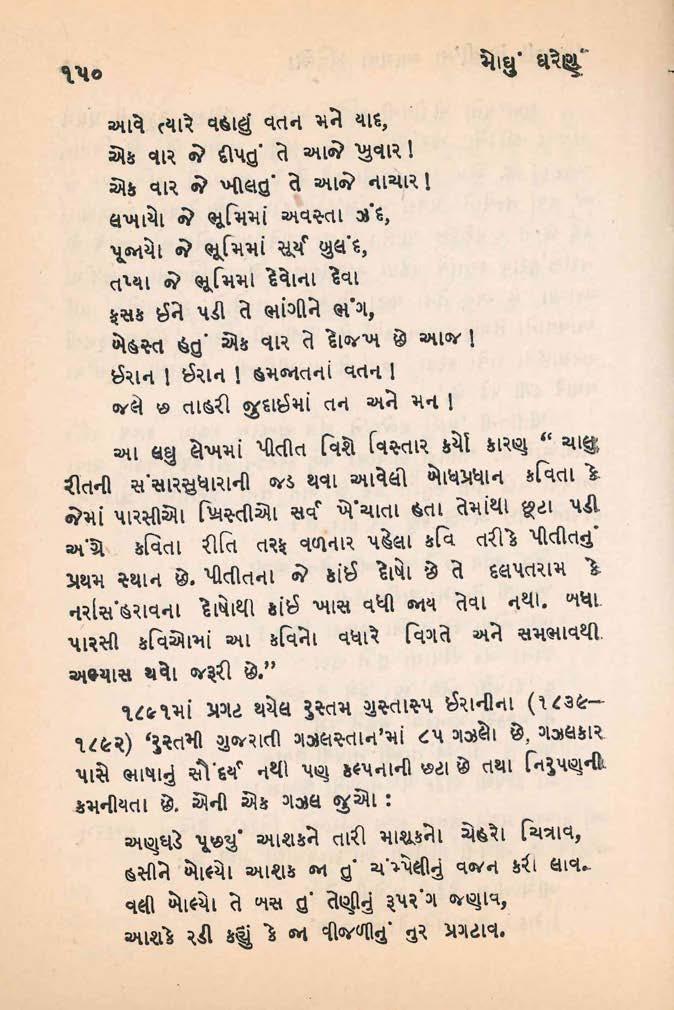 ૧૫૦
મોઘું ઘરેણું
આવે ત્યારે વહાલું વતન મને યાદ,
એક વાર જે દીપતું તે આજે ખુવાર!
એક વાર જે ખીલતું તે આજે નાચાર!
લખાયો જે ભૂમિમાં અવસ્તા ઝંદ,
પૂજાયો જે ભૂમિમાં સૂર્ય બુલંદ,
તપ્યા જે ભૂમિમાં દેવોના દેવા
ફસક ઈને પડી તે ભાંગીને ભંગ,
બેહસ્ત હતું એક વાર તે દોજખ છે આજ!
ઈરાન! ઈરાન! હમજાતનાં વતન!
જલે છ તાહરી જુદાઈમાં તન અને મન!
આ લઘુ લેખમાં પીતીત વિશે વિસ્તાર કર્યો કારણ “ ચાલુ
રીતની સંસારસુધારાની જડ થવા આવેલી બોધપ્રધાન કવિતા કે
જેમાં પારસીઓ ખ્રિસ્તીઓ સર્વ ખેંચાતા હતા તેમાંથી છૂટા પડી
અંગ્રે કવિતા રીતિ તરફ વળનાર પહેલા કવિ તરીકે પીતીતનું
પ્રથમ સ્થાન છે. પીતીતના જે કાંઈ દોષો છે તે દલપતરામ કે
નરસિંહરાવના દોષોથી કાંઈ ખાસ વધી જાય તેવા નથી. બધા
પારસી કવિઓમાં આ કવિનો વધારે વિગતે અને સમભાવથી
અભ્યાસ થવો જરૂરી છે.”
૧૮૯૧માં પ્રગટ થયેલ રુસ્તમ ગુસ્તાસ્પ ઈરાનીના (૧૮૩૯–
૧૮૯૨) ‘રુસ્તમી ગુજરાતી ગઝલસ્તાન’માં ૮૫ ગઝલો છે, ગઝલકાર
પાસે ભાષાનું સૌંદર્ય નથી પણ કલ્પનાની છટા છે તથા નિરુપણની
કમનીયતા છે. એની એક ગઝલ જુઓ :
અણઘડે પૂછ્યું આશકને તારી માશૂકનો ચેહરો ચિત્રાવ,
હસીને બોલ્યો આશક જા તું ચંમ્પેલીનું વજન કરી લાવ.
વલી બોલ્યો તે બસ તું તેણીનું રૂપરંગ જણાવ,
આશકે રડી કહ્યું કે જા વીજળીનું નુર પ્રગટાવ.